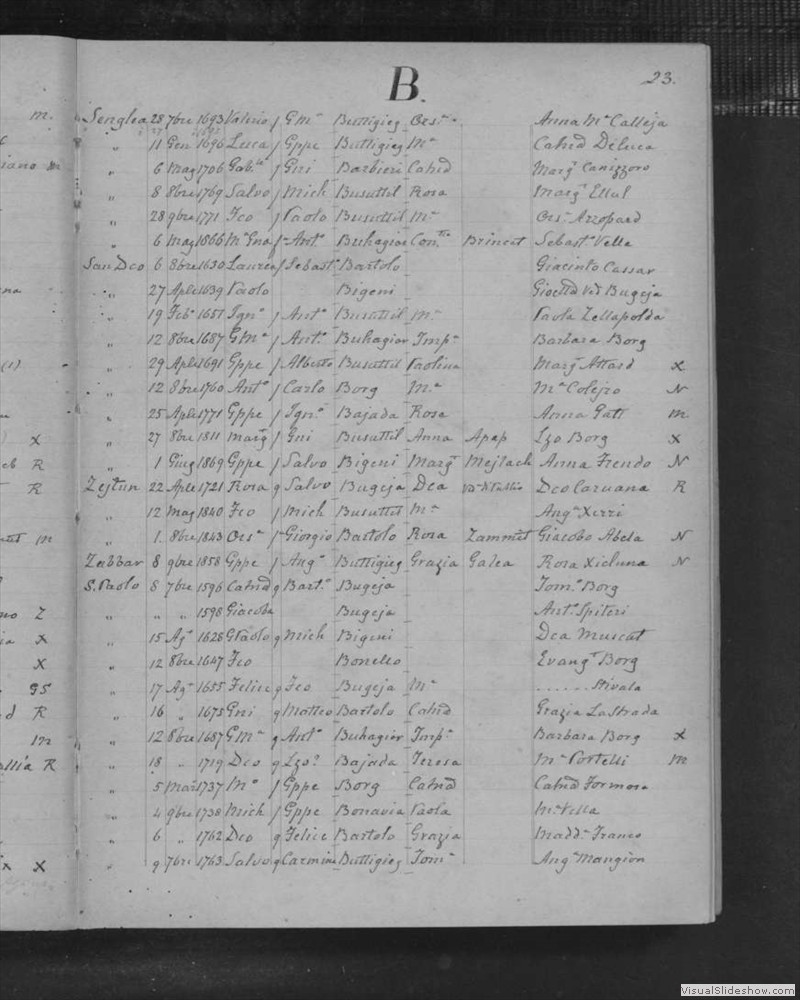 B.
23.
Senglea 28 7bre 1693 Valerio f Gm.a Buttigieg Ors.a Anna M.a Calleja
" 11 Gen 1696 Luca f Gppe Buttigieg M.a Catnd Deluca
" 6 Mag 1706 Gab.le f Gni Barbieri Catnd Marg.t Canizzoro
" 8 8bre 1769 Salvo f Mich Busuttil Rosa Marg.t Ellul
" 28 9bre 1771 Fco f Paolo Busuttil M.a Ors.a Azzopard
" 6 Mag 1866 M.a Gna f Ant.o Buhagiar Con.tta Brincat Sebast.o Vella
San Dco 6 8bre 1630 Laurea f Sebast.o Bartolo Giacinto Cassar
" 27 Aple 1639 Paolo Bigeni Gioella Vid Bugeja
" 19 Feb.o 1651 Ign.o f Ant.o Busuttil M.a Paola Zellapolda
" 12 8bre 1687 GM.a f Ant.o Buhagiar Imp.a Barbara Borg
" 29 Aple 1691 Gppe f Alberto Busuttil Paolina Marg.t Attard X
" 12 8bre 1760 Ant.o f Carlo Borg M.a M.a Colejro N
" 25 Aple 1771 Gppe f Ign.o Bajada Rosa Anna Gatt m
" 27 8bre 1811 Marg.t f Gni Busuttil Anna Apap Lzo Borg X
" 1 Giug 1869 Gppe f Salvo Bigeni Marg.t Mejlach Anna Frendo N
Zejtun 22 Aple 1721 Rosa q Salvo Bugeja Dca Dco Caruana R
" 12 Mag 1840 Fco f Mich Busuttil M.a Ang.a Xerri
" 1. 8bre 1843 Ors.a f Giorgio Bartolo Rosa Zammit Giacobo Abela N
Zabbar 8 9bre 1858 Gppe f Ang.o Buttigieg Grazia Galea Rosa Xicluna N
S. Paolo 8 7bre 1596 Catnd q Bart.o Bugeja Tom.o Borg
" " " 1598 Giacoba Bugeja Ant.o Spiteri
" 15 Ag.o 1628 GPaolo q Mich Bigeni Dca Muscat
" 12 8bre 1647 Fco Bonello Evang.ta Borg
" 17 Ag.o 1655 Felice q Fco Bugeja M.a ...... Rivala
" 16 " 1675 Gni q Matteo Bartolo Catnd Grazia La Strada
" 12 8bre 1687 GM.a q Ant.o Buhagiar Imp.a Barbara Borg X
" 18 " 1719 Dco q Lzo? Bajada Teresa M.a Portelli m
" 5 Mar 1737 M.o f Gppe Borg Catnd Catnd Formosa
" 4 9bre 1738 Mich f Gppe Bonavia Paola M.a Vella
" 6 " 1762 Dco q Felice Bartolo Grazia Madd.a Franco
" 9 7bre 1763 Salvo q Carmine Buttigieg Tom.a Ang.a Mangion
VisualSlideshow.com